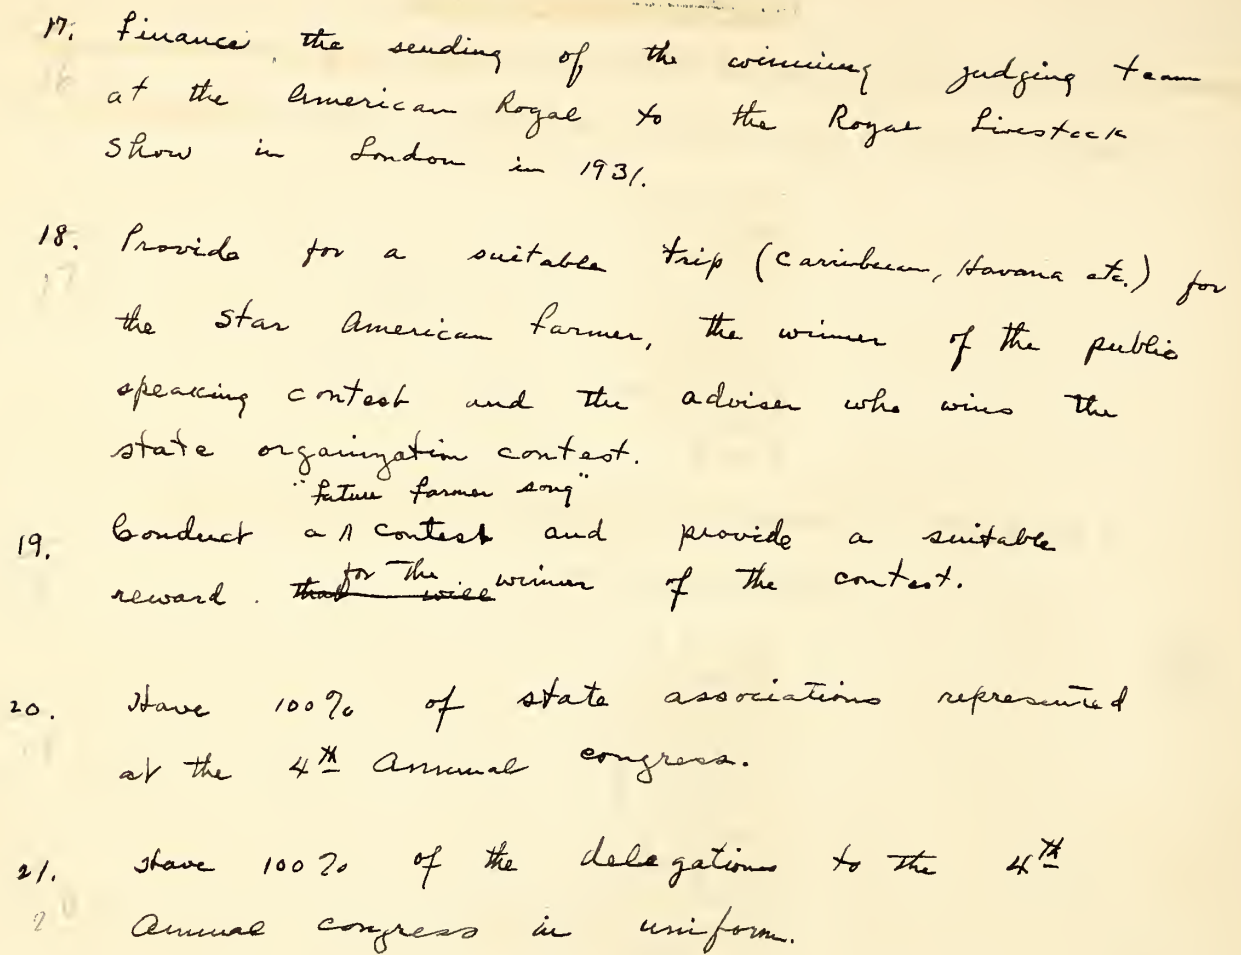 17. Finance the sending of the winning judging team
at the American Royal to the Royal Livestock
Show in London in 1931.
18. Provide for a suitable trip (Carribean, Havana etc.) for
the Star American Farmer, the winner of the public
speaking contest and the adviser who wins the
state organization contest.
"Future Farmer song"
19. Conduct a ^ contest and provide a suitable
for the
reward. that will winner of the contest.
20. Have 100% of state associations represented
at the 4th Annual congress.
21. Have 100% of the delegations to the 4th
Annual congress in uniform.